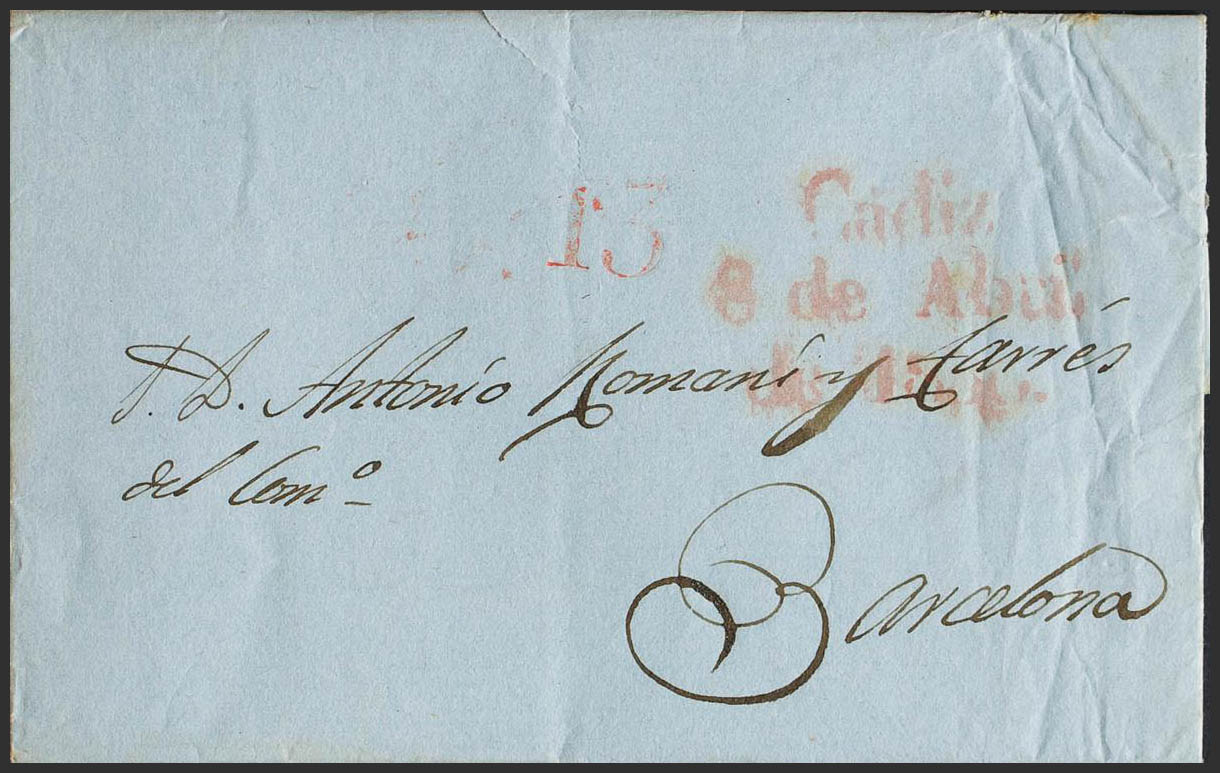 13
Cadiz
8 de Abril
S. D. Antonio Romaní y Tarrés
del Comº
Barcelona